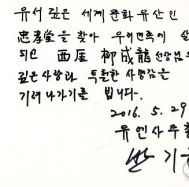 유서 깊은 세계 문화 유산인
忠孝堂을 찾아 우리민족이 살
되고 西厓 柳成龍 선생님의
깊은 사랑과 특별한 사랑감을
기려 나가기를 빕니다.
2016. 5. 29
유엔사무총
반 기